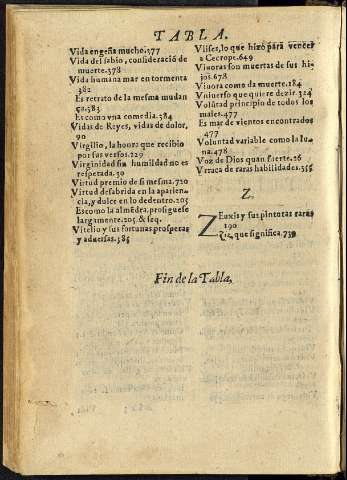 TABLA.
Vida engaña mucho.377
Vida del sabio, consideració de
muerte.378
Vida humana mar en tormenta
382
Es retrato de la mesma mudan
ça.383
Es como vna comedia.384
Vidas de Reyes, vidas de dolor,
90
Virgilio, la honra que recibio
por sus versos.229
Virginidad sin humildad no es
respetada.30
Virtud premio de si mesma.720
Virtud desabrida en la aparien-
cia, y dulce en lo de dentro.205
Es como la almẽdra. prosiguese
largamente.205.& seq.
Vitelio y sus fortunas prosperas
y aduersas.385
Vlises, lo que hizo para vencer
a Cecrope.649
Viuoras son muertas de sus hi-
jos.678
Viuora como da muerte.184
Vniuerso que quiere dezir.324
Volũtad principio de todos los
males.477
Es mar de vientos encontrados
477
Voluntad variable como la lu-
na.478
Voz de Dios quan fuerte.26
Vrraca de raras habilidades.355
Z.
ZEuxis y sus pintoras raras
190
Ziz, que significa.739
Fin de la Tabla,